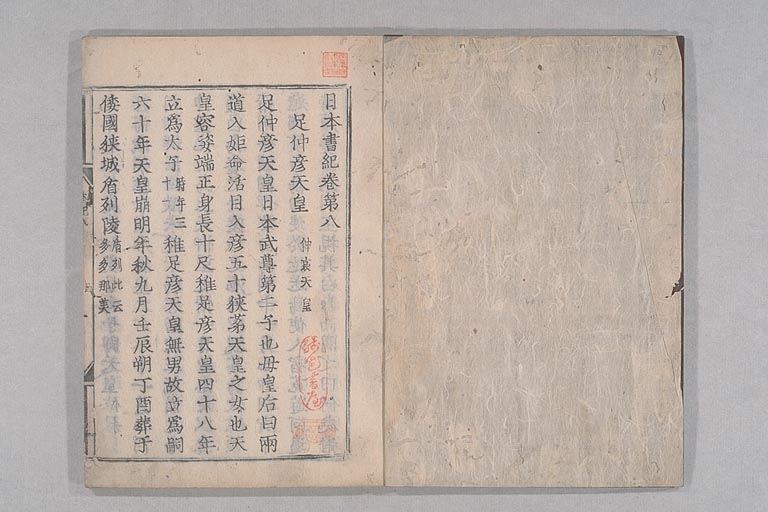 日本書紀卷第八
足仲彦天皇 仲哀天皇
足仲彦天皇日本武尊第二子也母皇后曰兩
道入姫命活目入彦五十狹茅天皇之女也天
皇容姿端正身長十尺稚足彦天皇四十八年
立爲太子 時年三十一 稚足彦天皇無男故立爲嗣
六十年天皇崩明年秋九月壬辰朔丁酉葬于
倭國狹城盾列陵 盾列此云多多那美